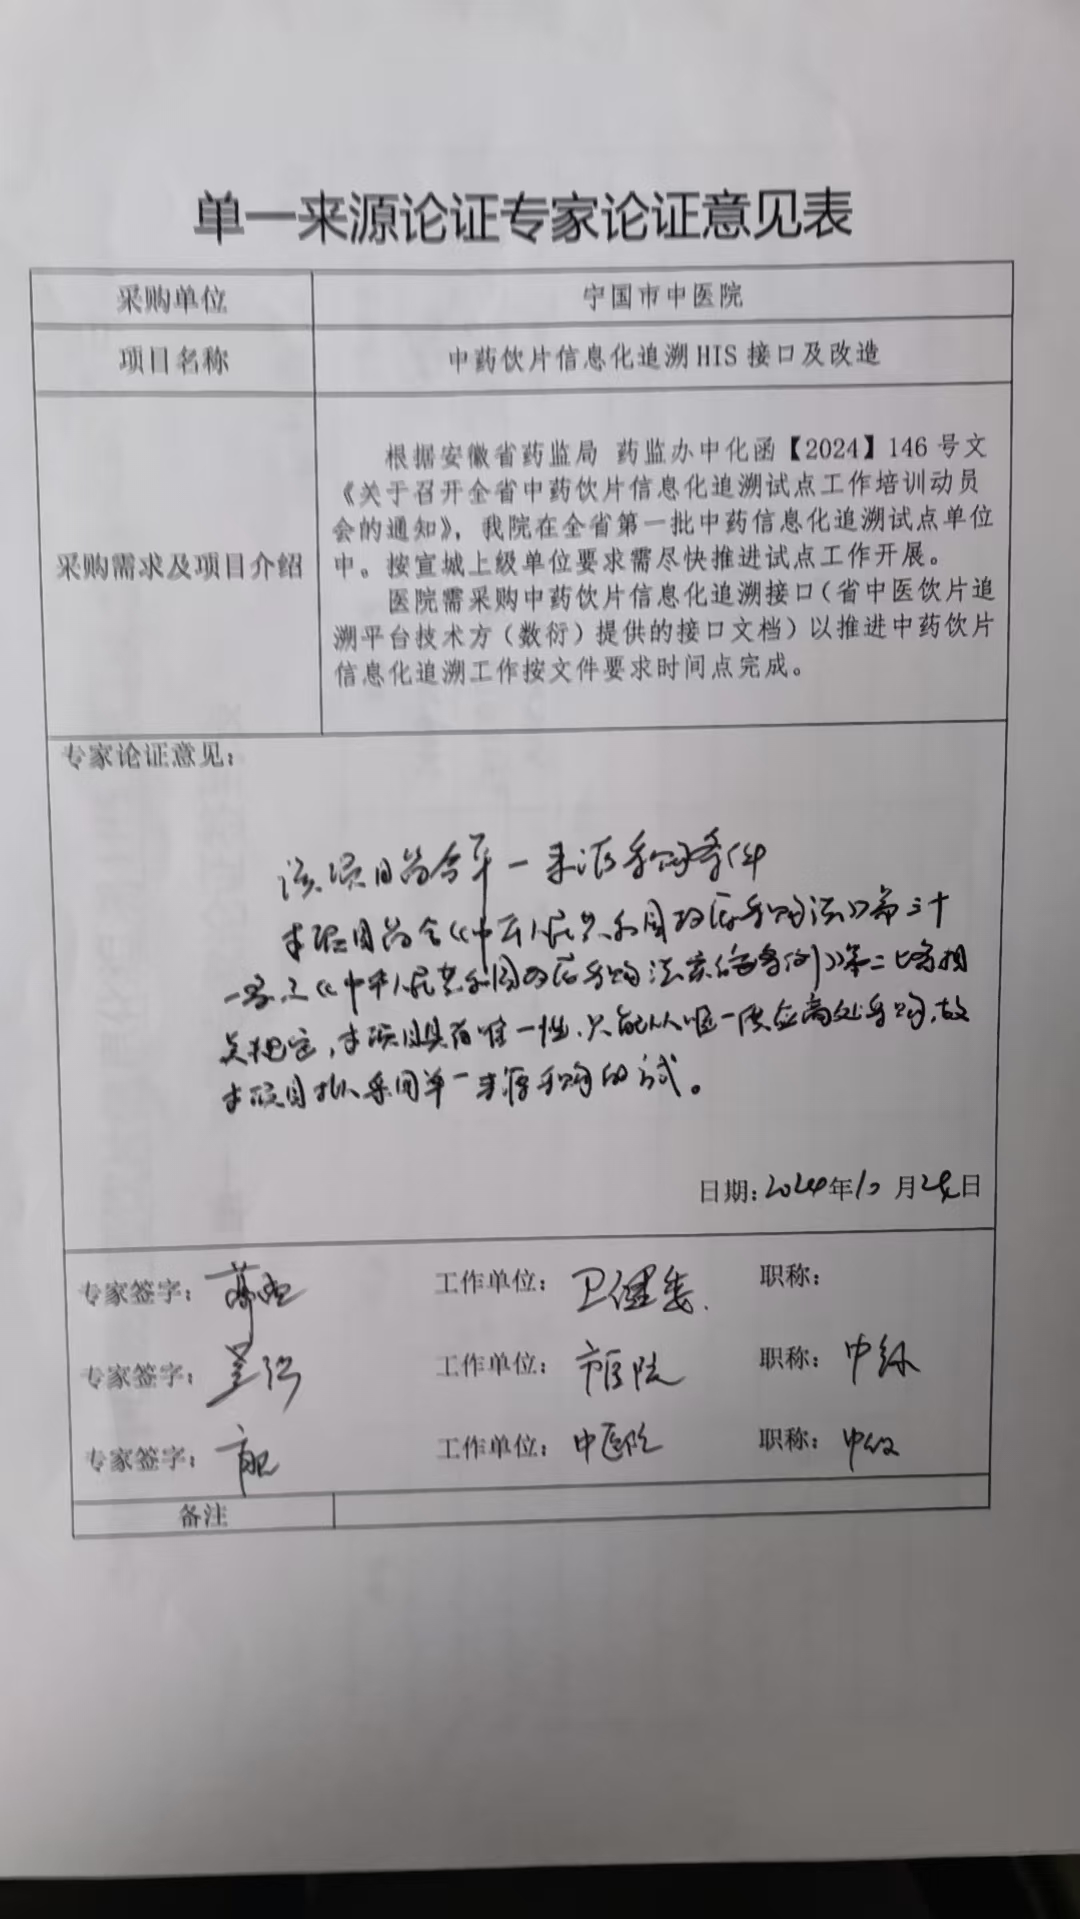 单一来源论证专家论证意见表
采购单位
宁国市中医院
项目名称
中药饮片信息化追溯HIS接口及改造
采购需求及项目介绍
根据安徽省药监局 药监办中化函【2024】146号文
《关于召开全省中药饮片信息化追溯试点工作培训动员
会的通知》，我院在全省第一批中药信息化追溯试点单位
中。按宣城上级单位要求需尽快推进试点工作开展。
医院需采购中药饮片信息化追溯接口（省中医饮片追
溯平台技术方（数衍）提供的接口文档）以推进中药饮片
信息化追溯工作按文件要求时间点完成。
专家论证意见：
该项目符合单一来源采购条件
本项目符合《中华人民共和国政府采购法》第三十
一条及《中华人民共和国政府采购法实施条例》第二七条相
关规定，本项目具有唯一性，只能从唯一供应商处采购，故
本项目拟采用单一来源采购的方式。
日期：2024年10月28日
专家签字： 工作单位：卫健委. 职称：
专家签字： 工作单位：市医院 职称：中级
专家签字： 工作单位：中医院 职称：中级
备注